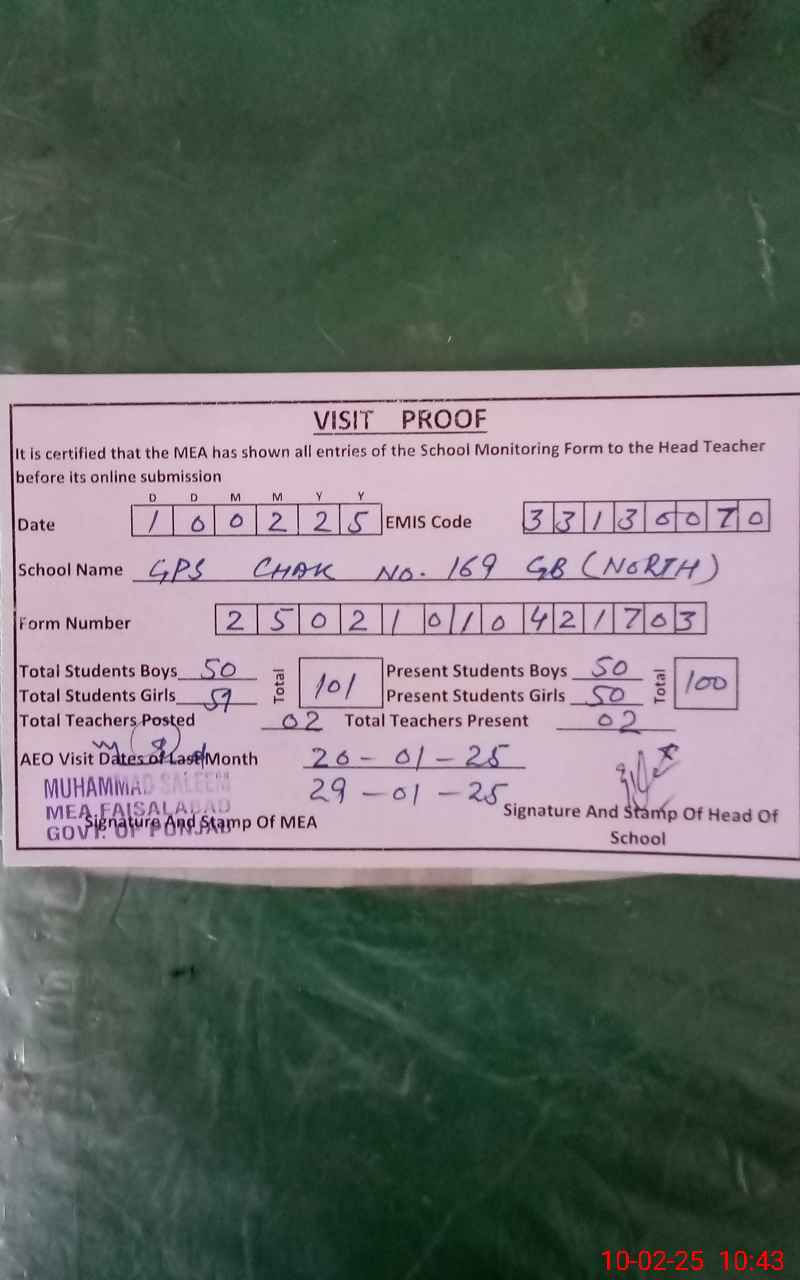 VISIT PROOF
It is certified that the MEA has shown all entries of the School Monitoring Form to the Head Teacher
before its online submission
D D M M Y Y
Date 1 0 0 2 2 5 EMIS Code 3 3 1 3 0 0 7 0
School Name GPS CHAK NO. 169 GB (NORTH)
Form Number 2 5 0 2 1 0 1 0 4 2 1 7 0 3
Total Students Boys 50 Total 101 Present Students Boys 50 Total 100
Total Students Girls 51 Present Students Girls 50
Total Teachers Posted 02 Total Teachers Present 02
AEO Visit Dates of Last Month 20-01-25
29-01-25
MUHAMMAD SALEEM
MEA FAISALABAD
GOVT. OF PUNJAB
Signature And Stamp Of MEA
Signature And Stamp Of Head Of
School
10-02-25 10:43